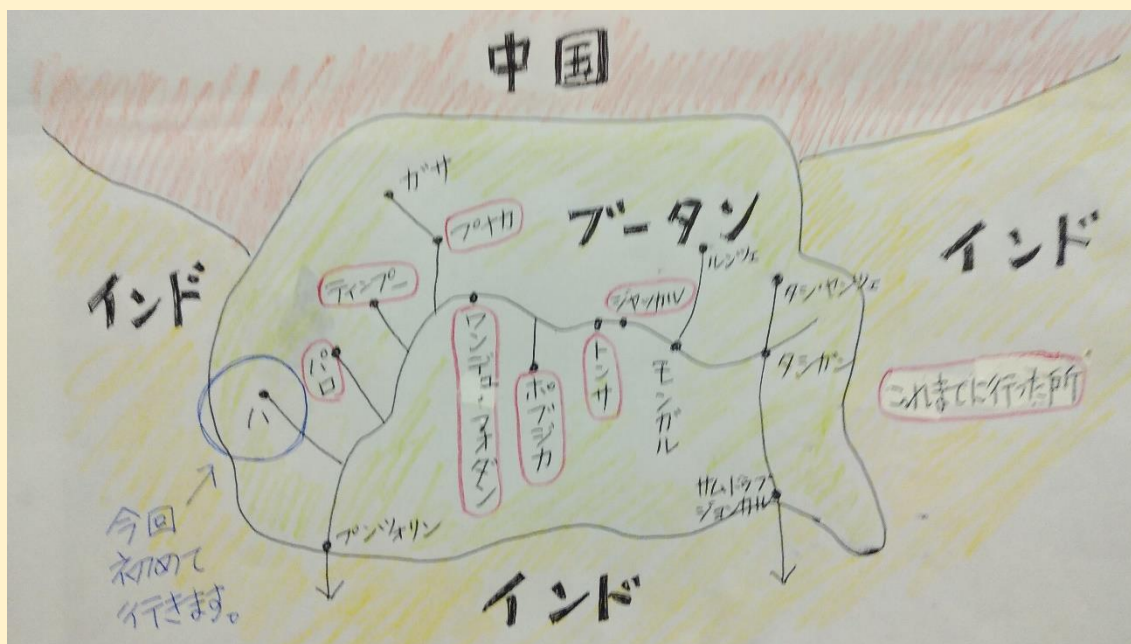 中国
ガサ
プナカ
ブータン
インド
インド
ルンツェ
ティンプー
ジャッカル
タシ・ヤンツェ
パロ
ワンデュ・フォダン
ポブジカ
トンサ
モンガル
タシガン
これまでに行った所
ハ
サムドゥプ
ジョンカル
プンツォリン
今回
初めて
行きます。
インド